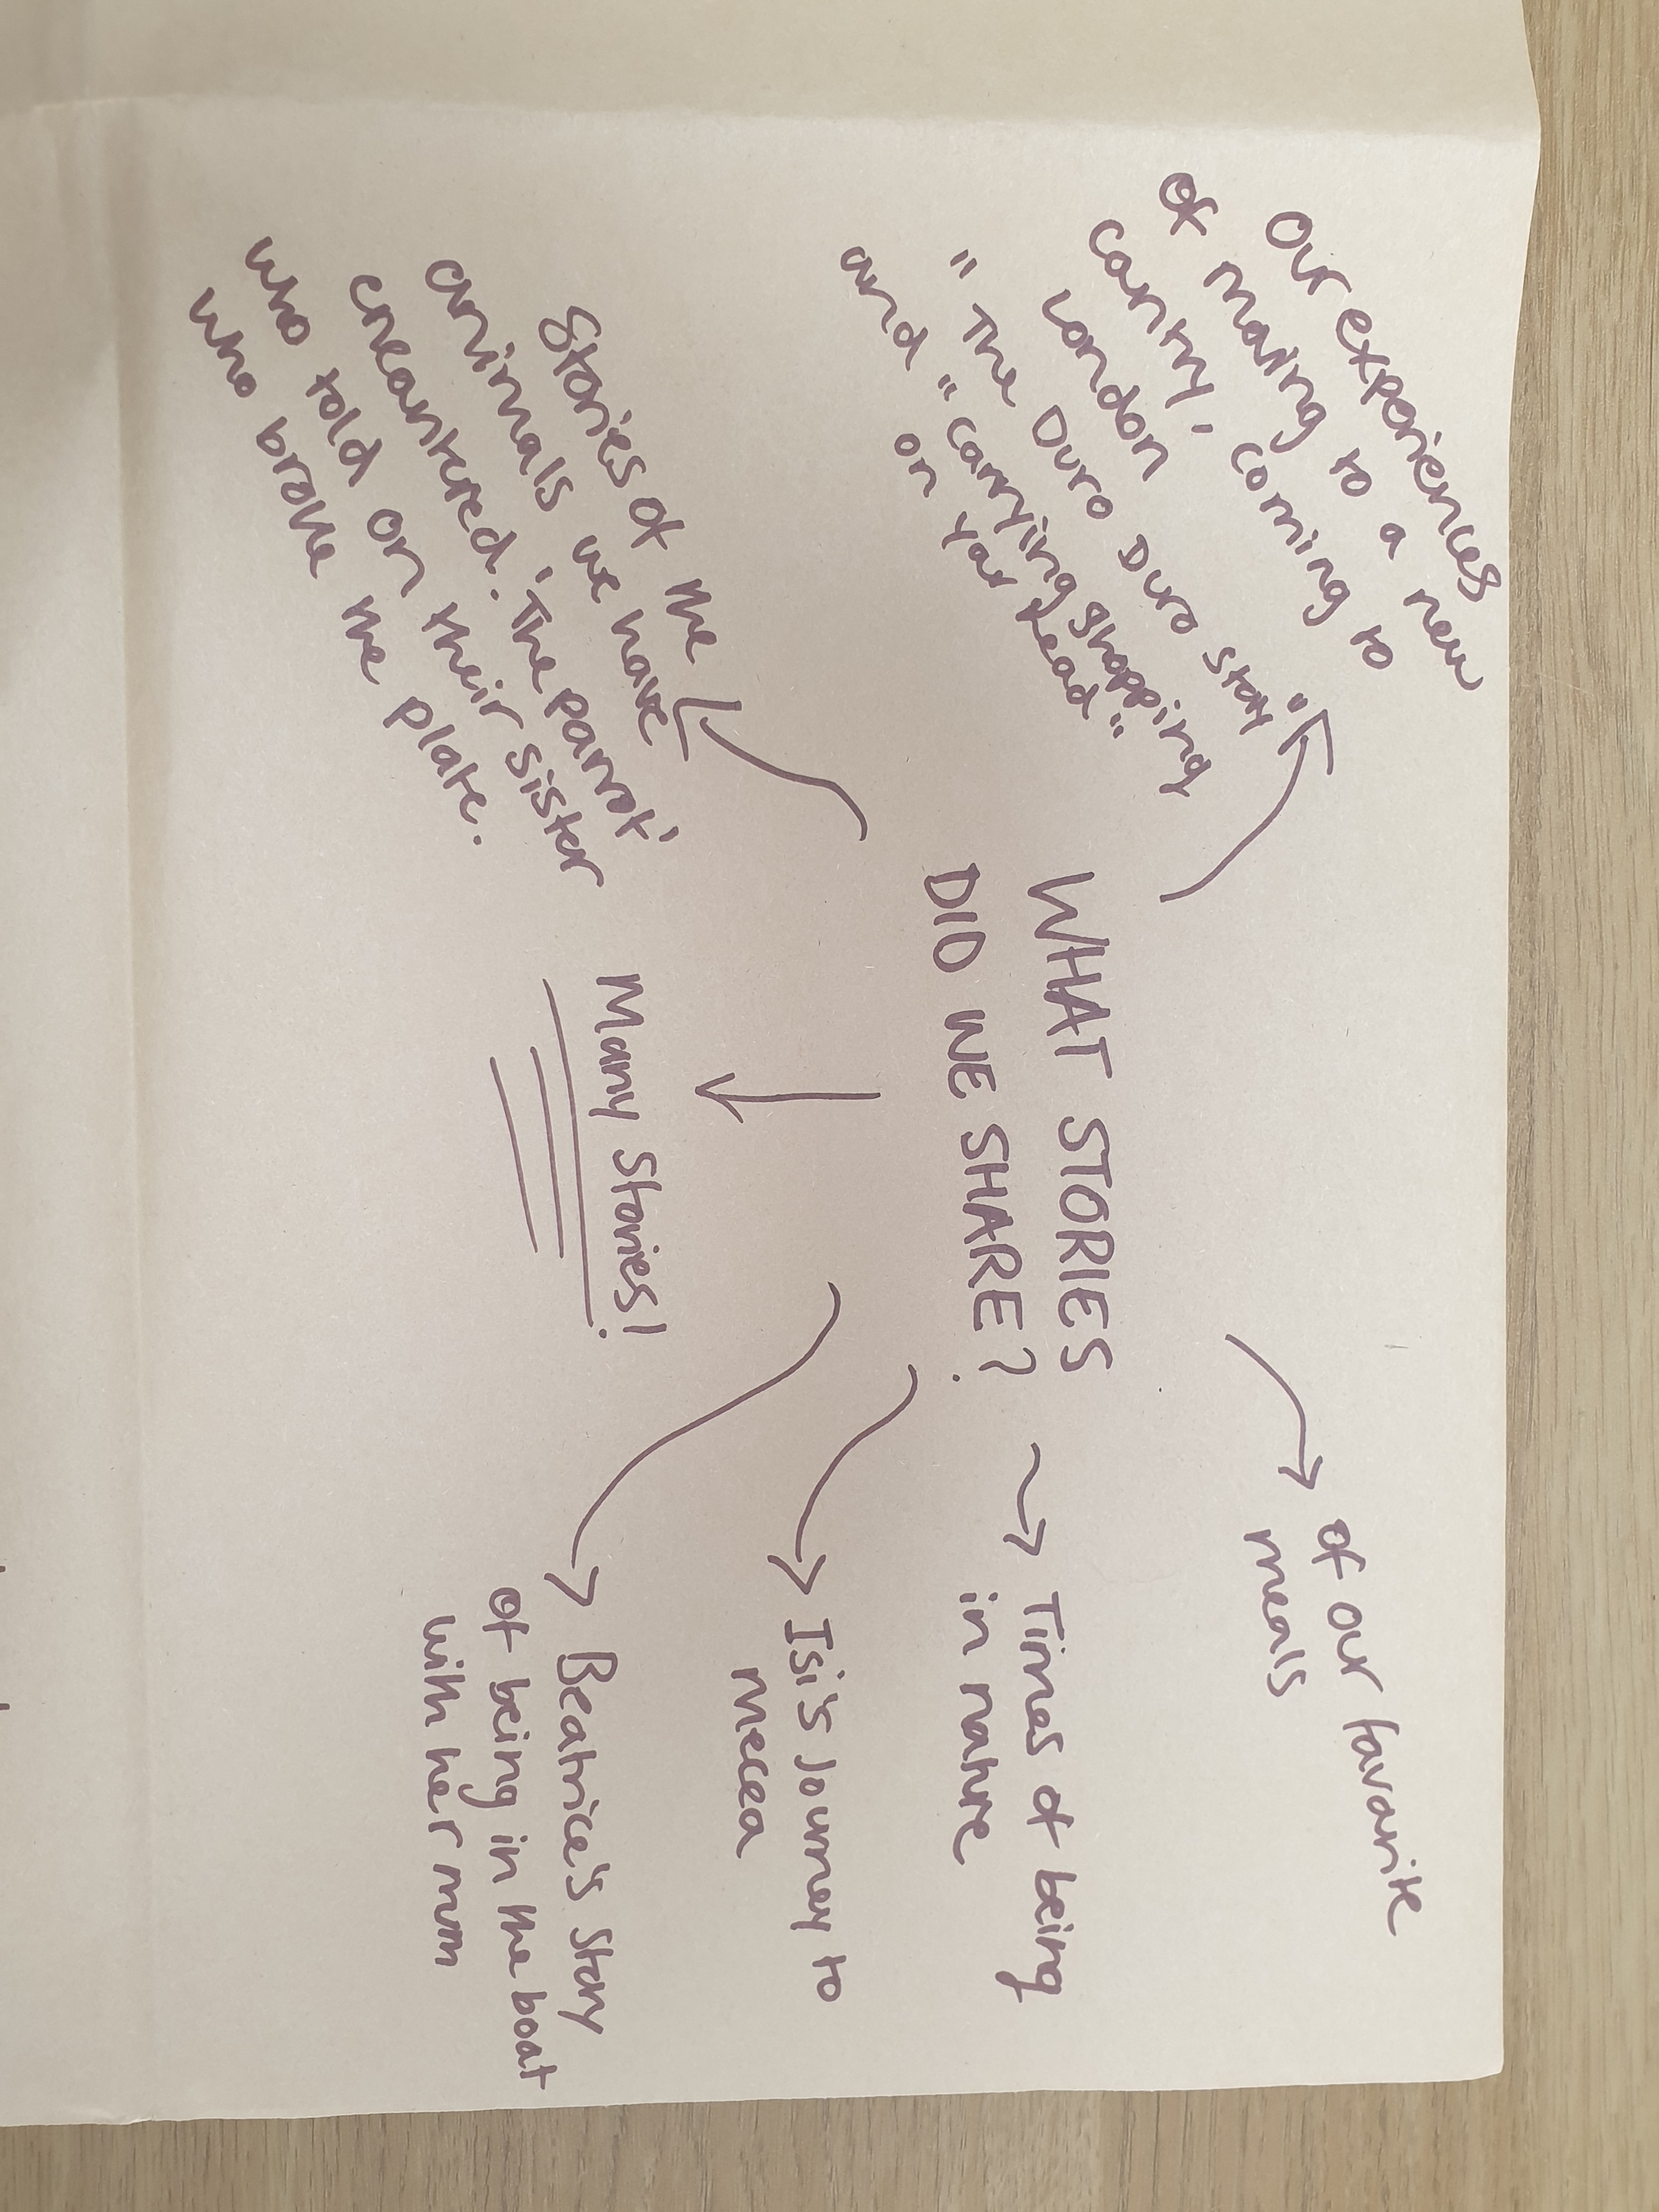 WHAT STORIES
DID WE SHARE?
Our experiences
of moving to a new
country, coming to
London
"The Duro Duro story"
and "carrying shopping
on your head"
of our favourite
meals
Times of being
in nature
Isi's Journey to
Mecca
Beatrice's Story
of being in the boat
with her mum
Many Stories!
Stories of the
animals we have
encountered. 'The parrot'
who told on their sister
who broke the plate.